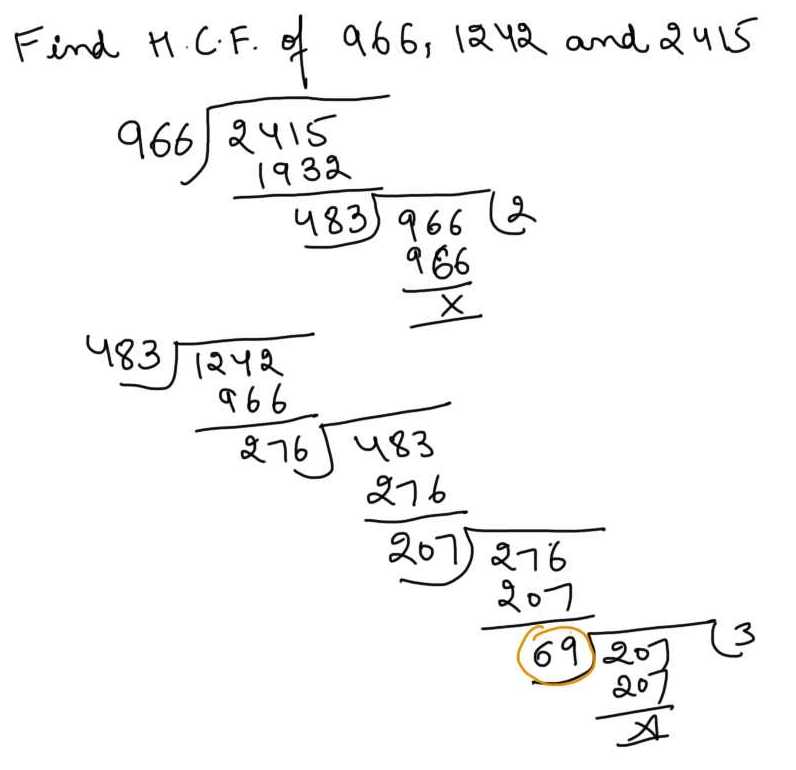 Find H.C.F. of 966, 1242 and 2415
966) 2415
1932
483) 966 (2
966
x
483) 1242
966
276) 483
276
207) 276
207
69) 207 (3
207
x